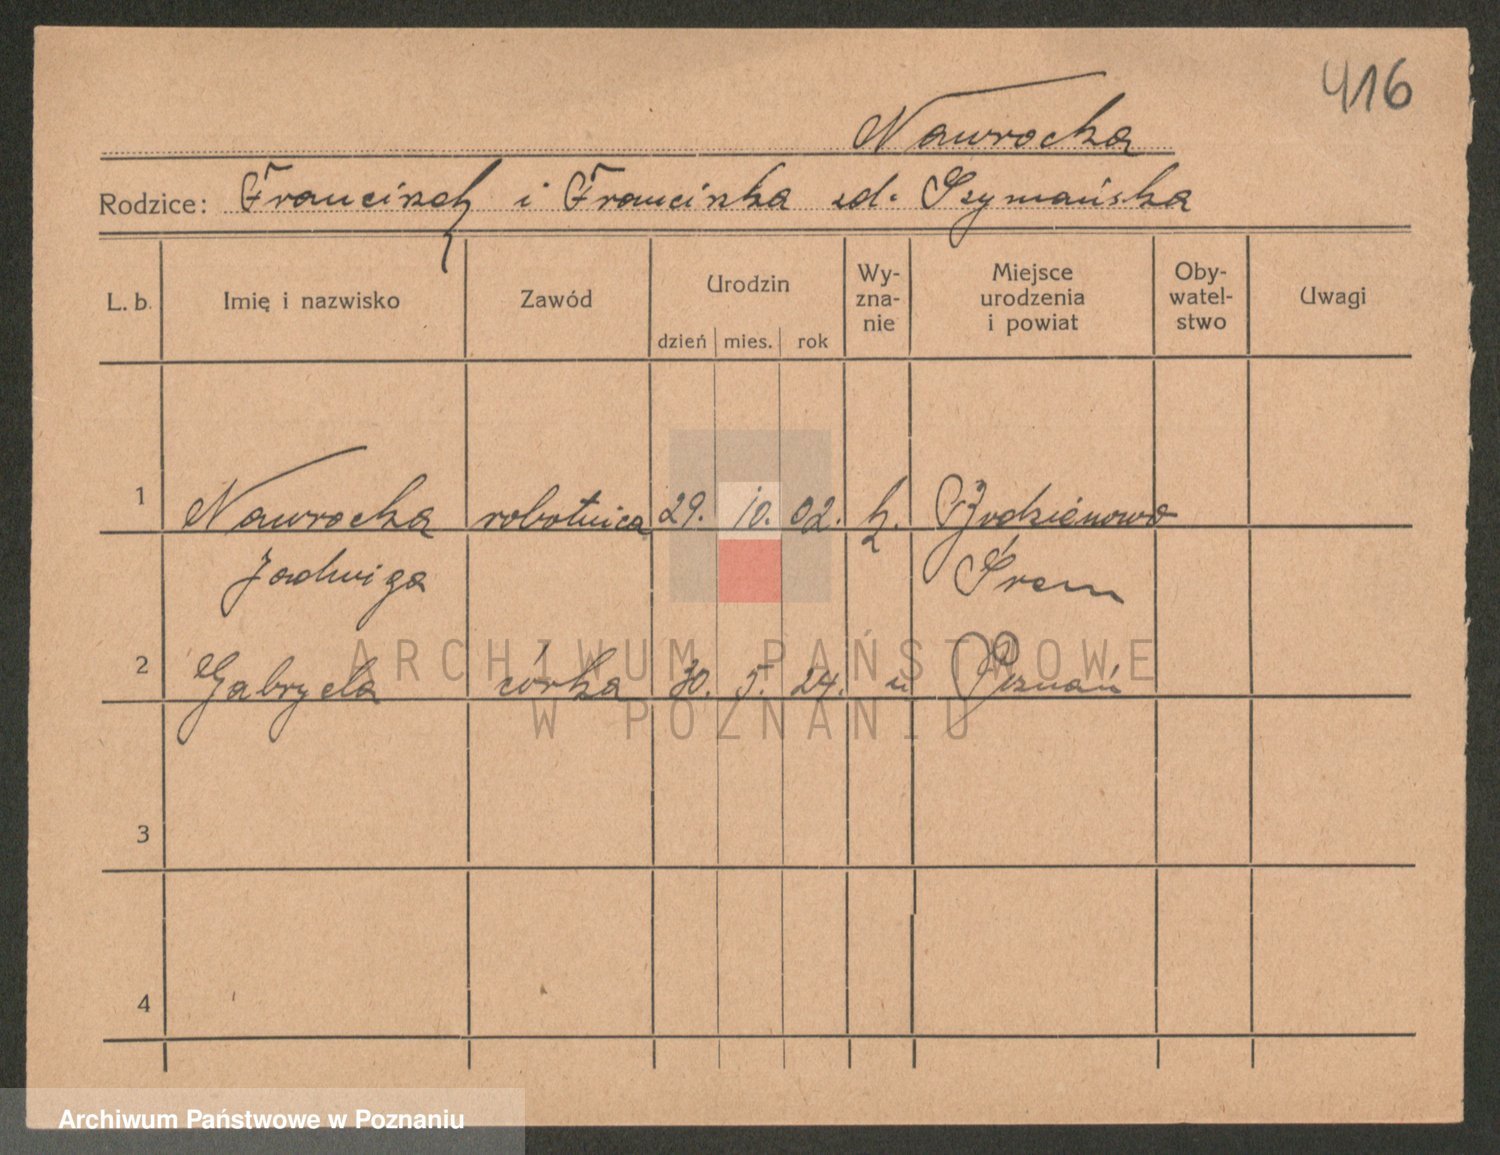 416
Nawrocka
Rodzice: Franciszek i Franciszka zd. Szymańska
L. b.
Imię i nazwisko
Zawód
Urodzin
dzień mies. rok
Wy-
zna-
nie
Miejsce
urodzenia
i powiat
Oby-
watel-
stwo
Uwagi
1 Nawrocka robotnica 29. 10. 02.
Jadwiga Śrem
2 Gabryela córka 30. 5. 24. " Poznań
3
4
ARCHIWUM PAŃSTWOWE
W POZNANIU
Archiwum Państwowe w Poznaniu